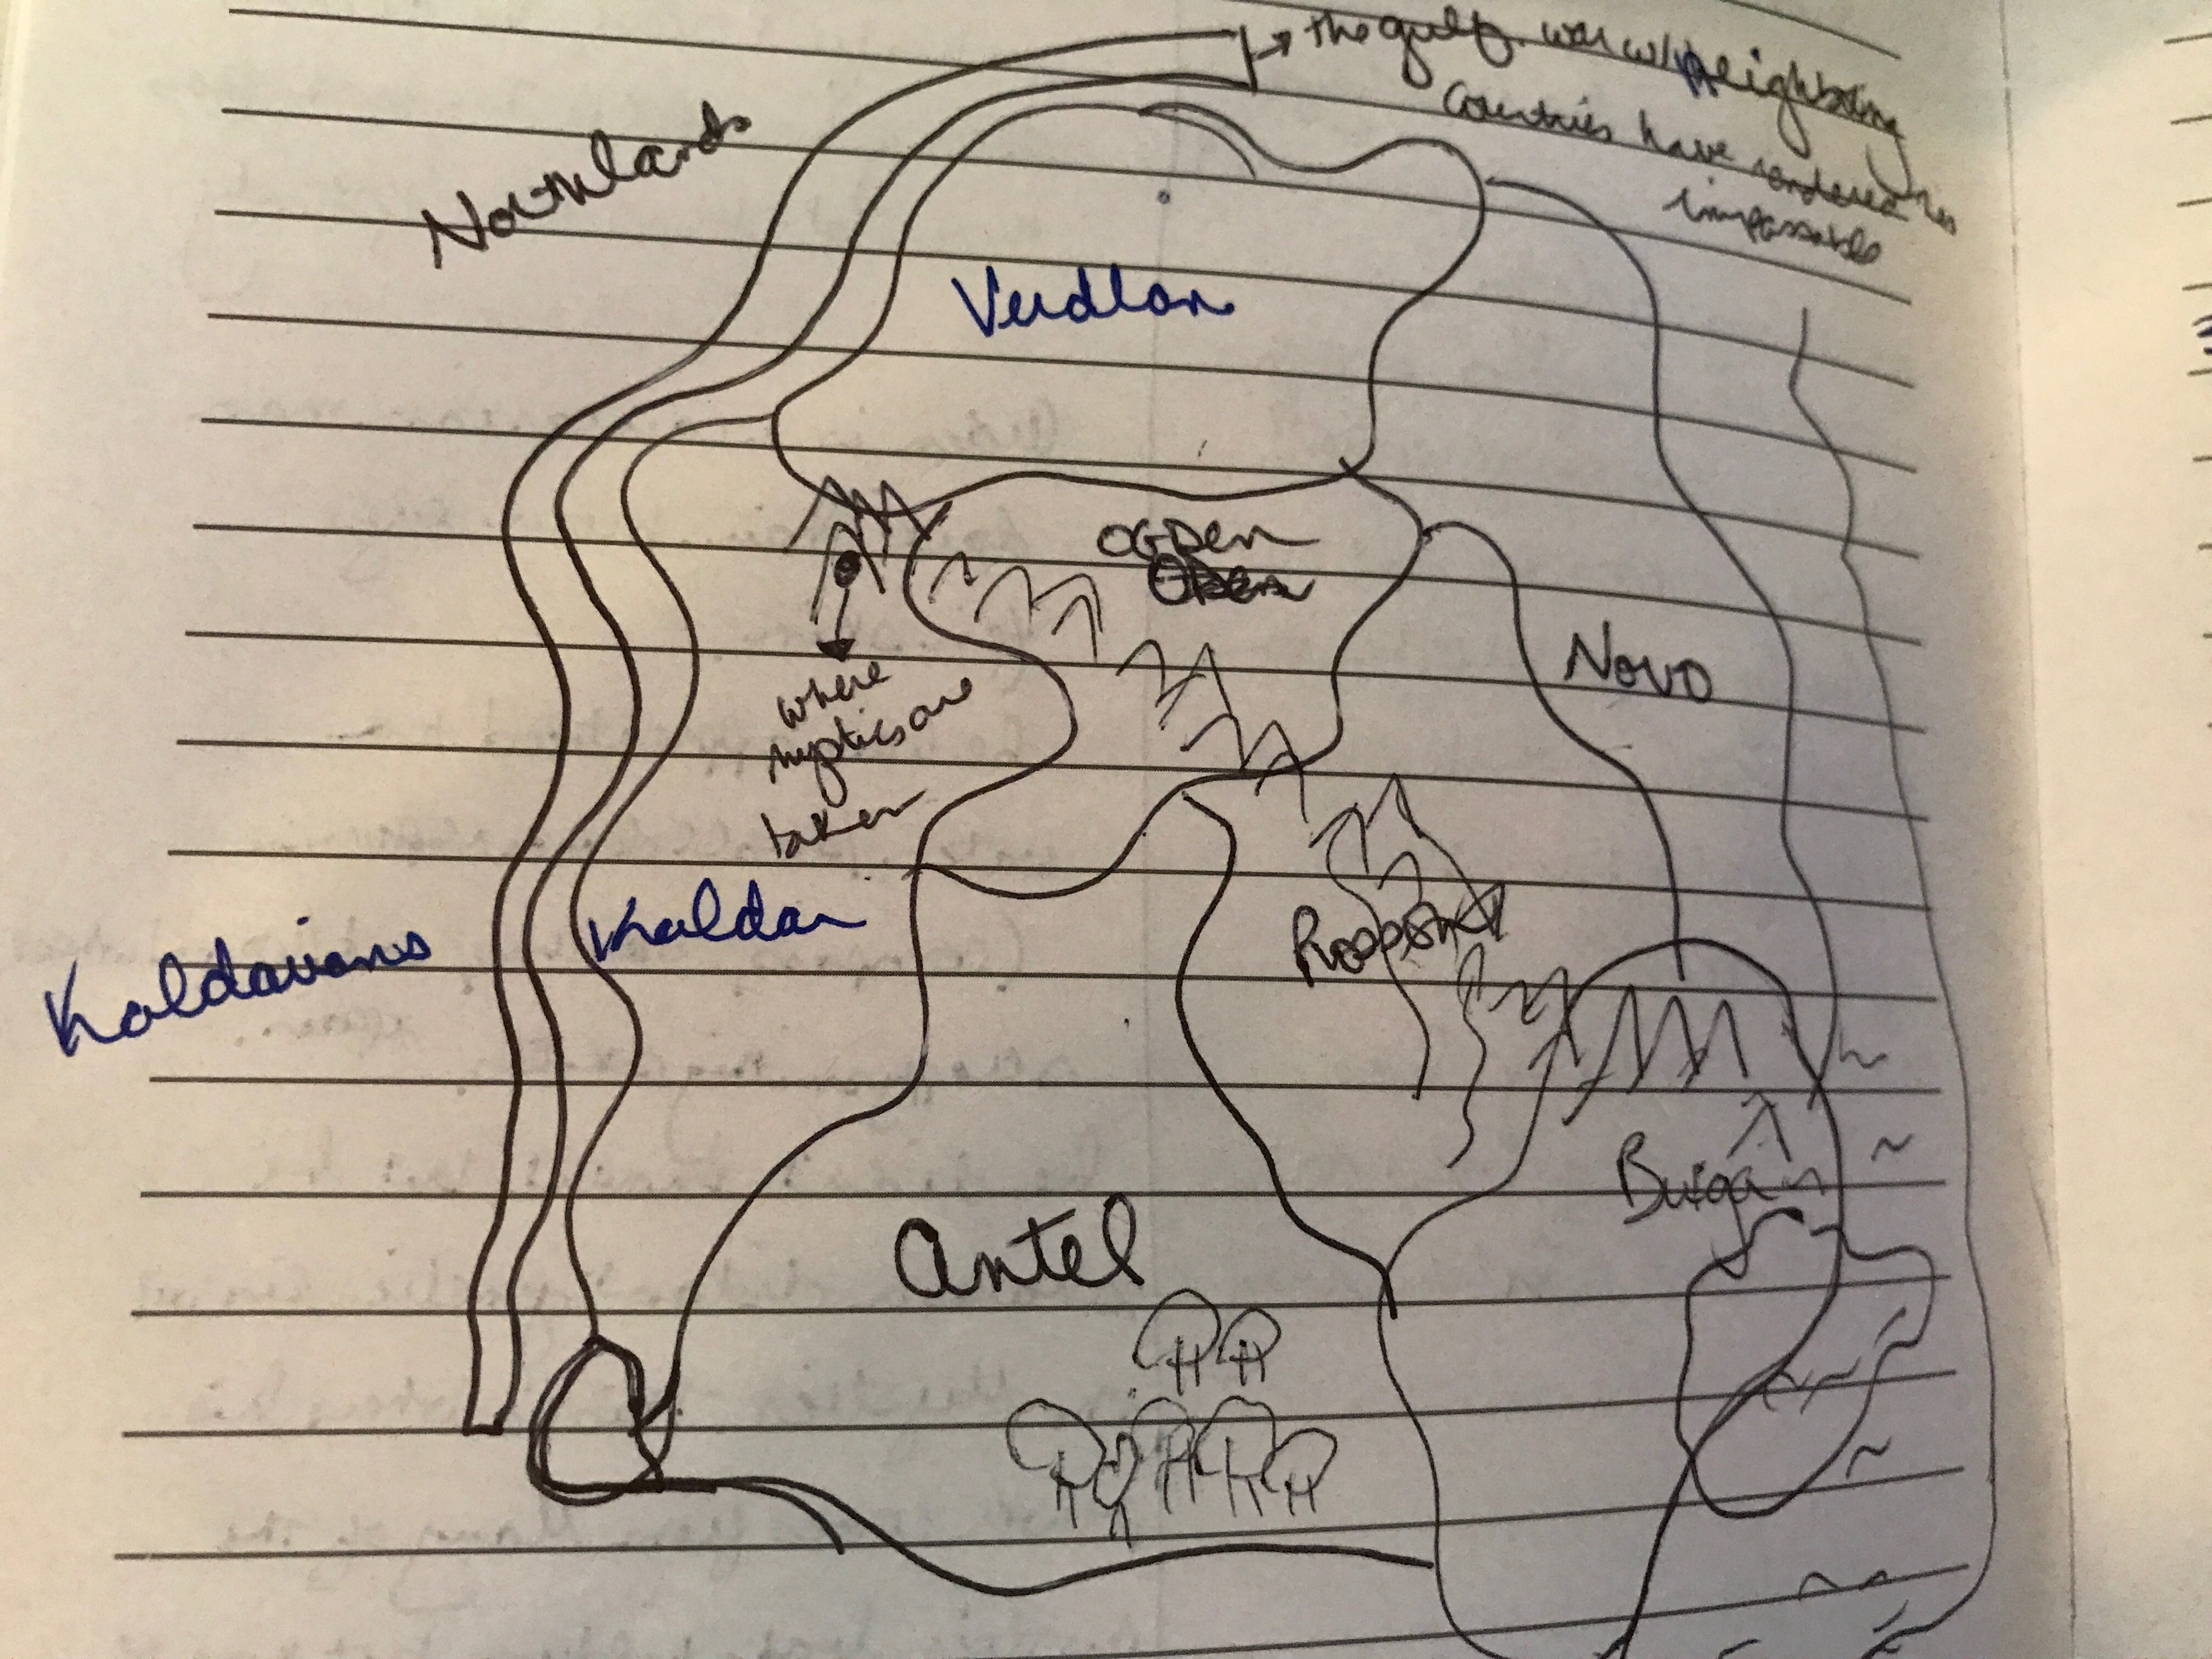 → the gulf. war w/ neighboring
countries have rendered this
impassable
Northlands
Verdlan
OGDen
Novo
where
mystics are
taken
Kaldan
Kaldavians
Burgan
Antel